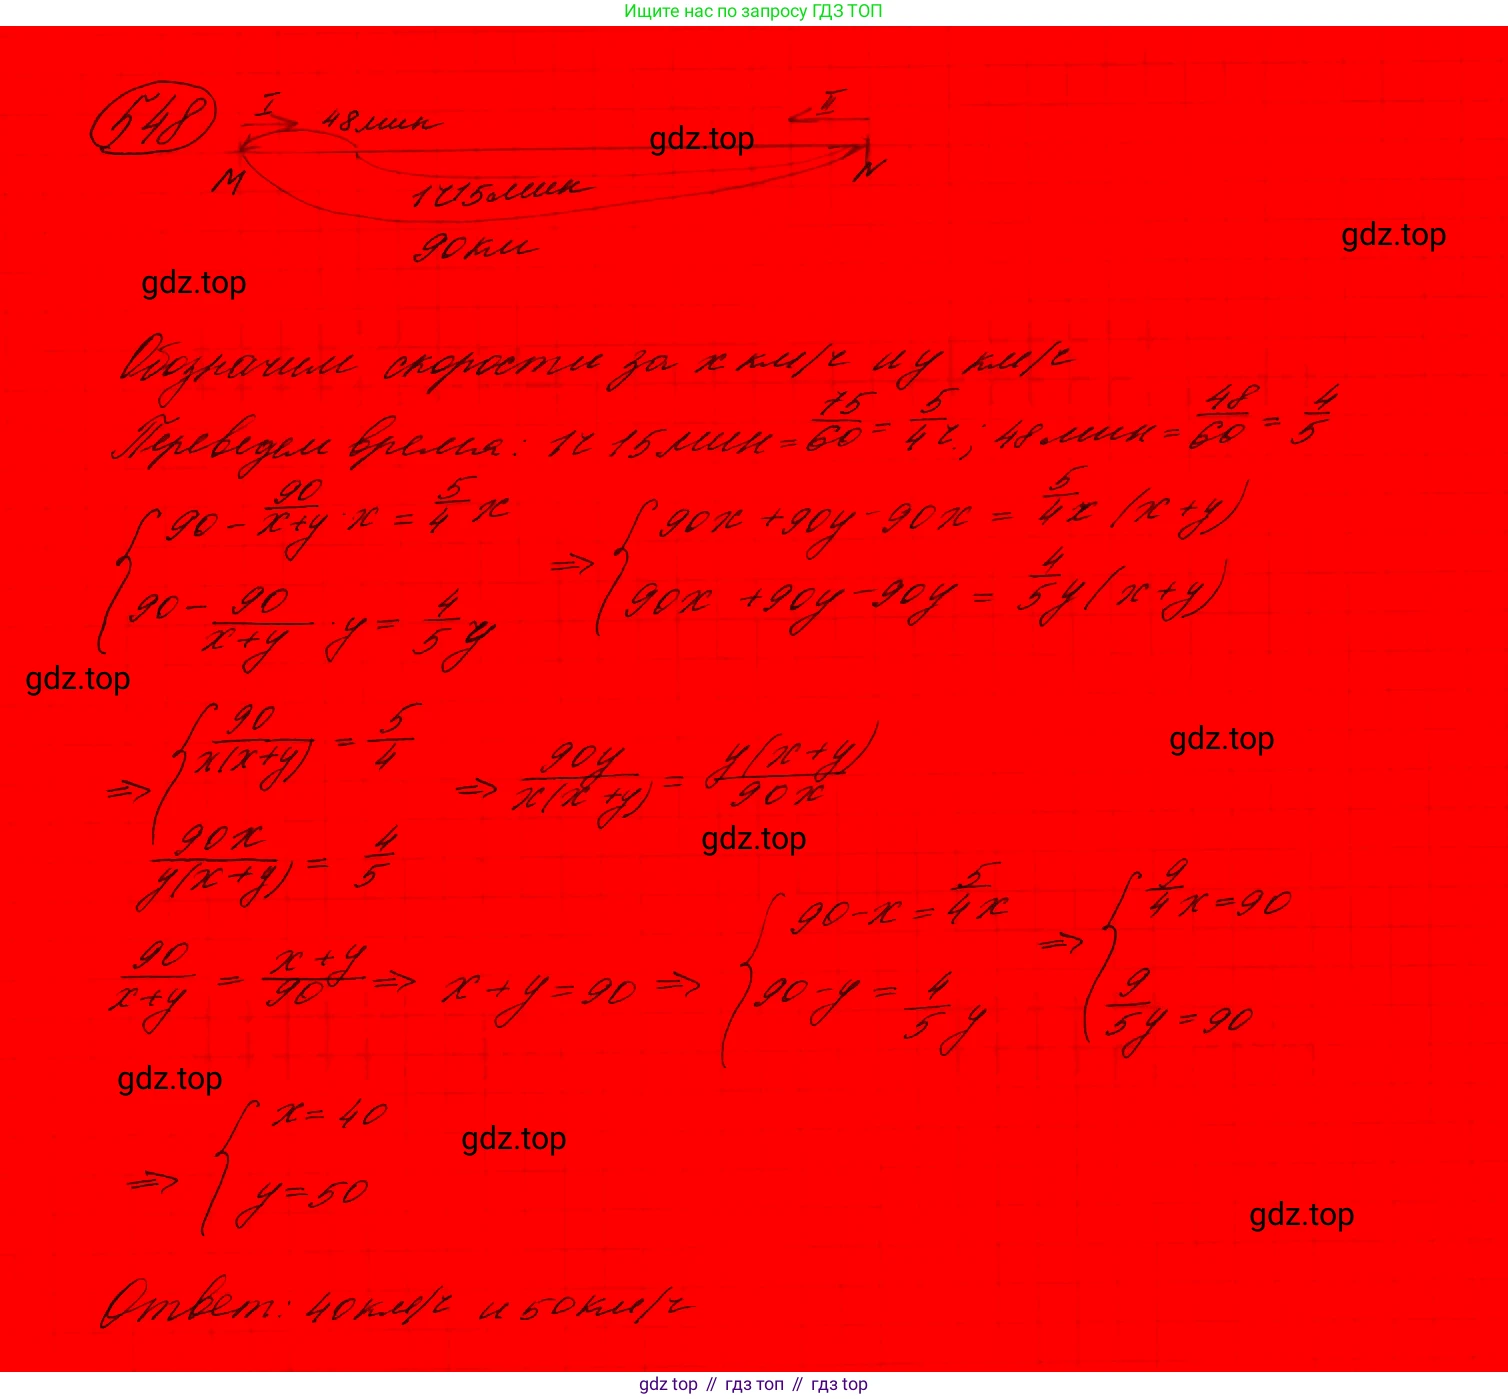 Ищите нас по запросу ГДЗ ТОП
548
I 48мин II
gdz.top
M N
1ч15мин
90км
gdz.top
gdz.top
Обозначим скорости за x км/ч и y км/ч
Переведем время: 1ч 15мин = 75/60 = 5/4 ч.; 48мин = 48/60 = 4/5
{ 90 - 90/(x+y) · x = 5/4 x ⇒ { 90x + 90y - 90x = 5/4 x (x+y)
90 - 90/(x+y) · y = 4/5 y 90x + 90y - 90y = 4/5 y (x+y)
gdz.top
⇒ { 90/(x(x+y)) = 5/4 ⇒ 90y/(x(x+y)) = y(x+y)/(90x)
gdz.top
90x/(y(x+y)) = 4/5
gdz.top
90/(x+y) = (x+y)/90 ⇒ x+y=90 ⇒ { 90-x = 5/4 x ⇒ { 9/4 x = 90
90-y = 4/5 y 9/5 y = 90
gdz.top
⇒ { x = 40
gdz.top
y = 50
gdz.top
Ответ: 40км/ч и 50км/ч
gdz top // гдз топ // гдз top